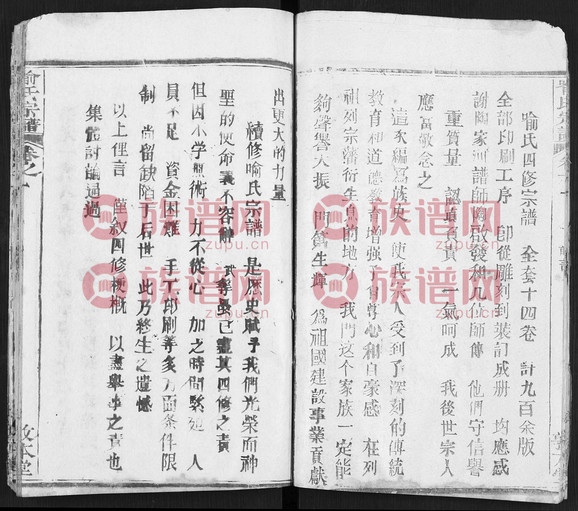 喻氏四修宗譜 全套十四卷 計九百余版
全部印刷工序 即從雕刻到裝訂成册 均應感
謝陶家河譜師陶啟發和几位師傳 他們守信譽
重質量 認真負責 一氣呵成 我後世宗人
應當敬念之
這次編寫族史 使我宗人受到了深刻的傳統
教育和道德教育增強了自尊心和自豪感 在列
祖列宗藩衍生息的地方 我門这个家族一定能
夠聲譽大振 明堂生輝 爲祖國建設事業貢獻
出更大的力量
續修喻氏宗譜 是歷史賦予我們光榮而神
聖的使命 義不容辭 武等雖已盡其四修之責
但因小學無術 力不從心 加之時間緊迫 人
員不足 資金困難 手工印刷等多方面条件限
制 尚留缺陷于后世 此乃終生之遺憾
以上俚言 僅叙四修梗概 以盡舉事之責也
集體討論通過
喻氏宗譜
卷之一
敦本堂
族谱网
zupu.cn
族谱网
zupu.cn
族谱网
zupu.cn
族谱网
zupu.cn